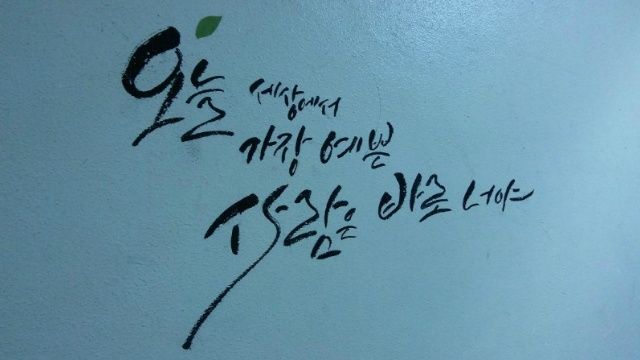 오늘 세상에서
가장 예쁜
사람은 바로 너야